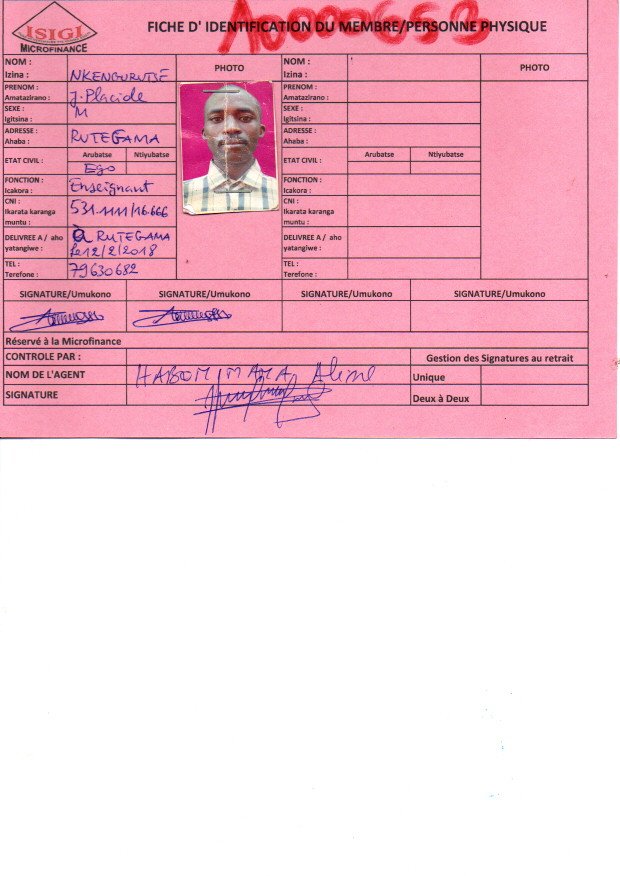 ISIGI
MICROFINANCE
FICHE D' IDENTIFICATION DU MEMBRE/PERSONNE PHYSIQUE
NOM :
Izina :
NKENGURUTSE
PHOTO
PRENOM :
Amatazirano :
J. Placide
SEXE :
Igitsina :
M
ADRESSE :
Ahaba :
RUTEGAMA
ETAT CIVIL :
Arubatse
Ntiyubatse
Ego
FONCTION :
Icakora :
Enseignant
CNI :
Ikarata karanga
muntu :
531.1111/16.666
DELIVREE A / aho
yatangiwe :
à RUTEGAMA
le 12/2/2018
TEL :
Terefone :
79630682
NOM :
Izina :
PHOTO
PRENOM :
Amatazirano :
SEXE :
Igitsina :
ADRESSE :
Ahaba :
ETAT CIVIL :
Arubatse
Ntiyubatse
FONCTION :
Icakora :
CNI :
Ikarata karanga
muntu :
DELIVREE A / aho
yatangiwe :
TEL :
Terefone :
SIGNATURE/Umukono
SIGNATURE/Umukono
SIGNATURE/Umukono
SIGNATURE/Umukono
Réservé à la Microfinance
CONTROLE PAR :
Gestion des Signatures au retrait
NOM DE L'AGENT
HABONIMANA Aline
Unique
SIGNATURE
Deux à Deux